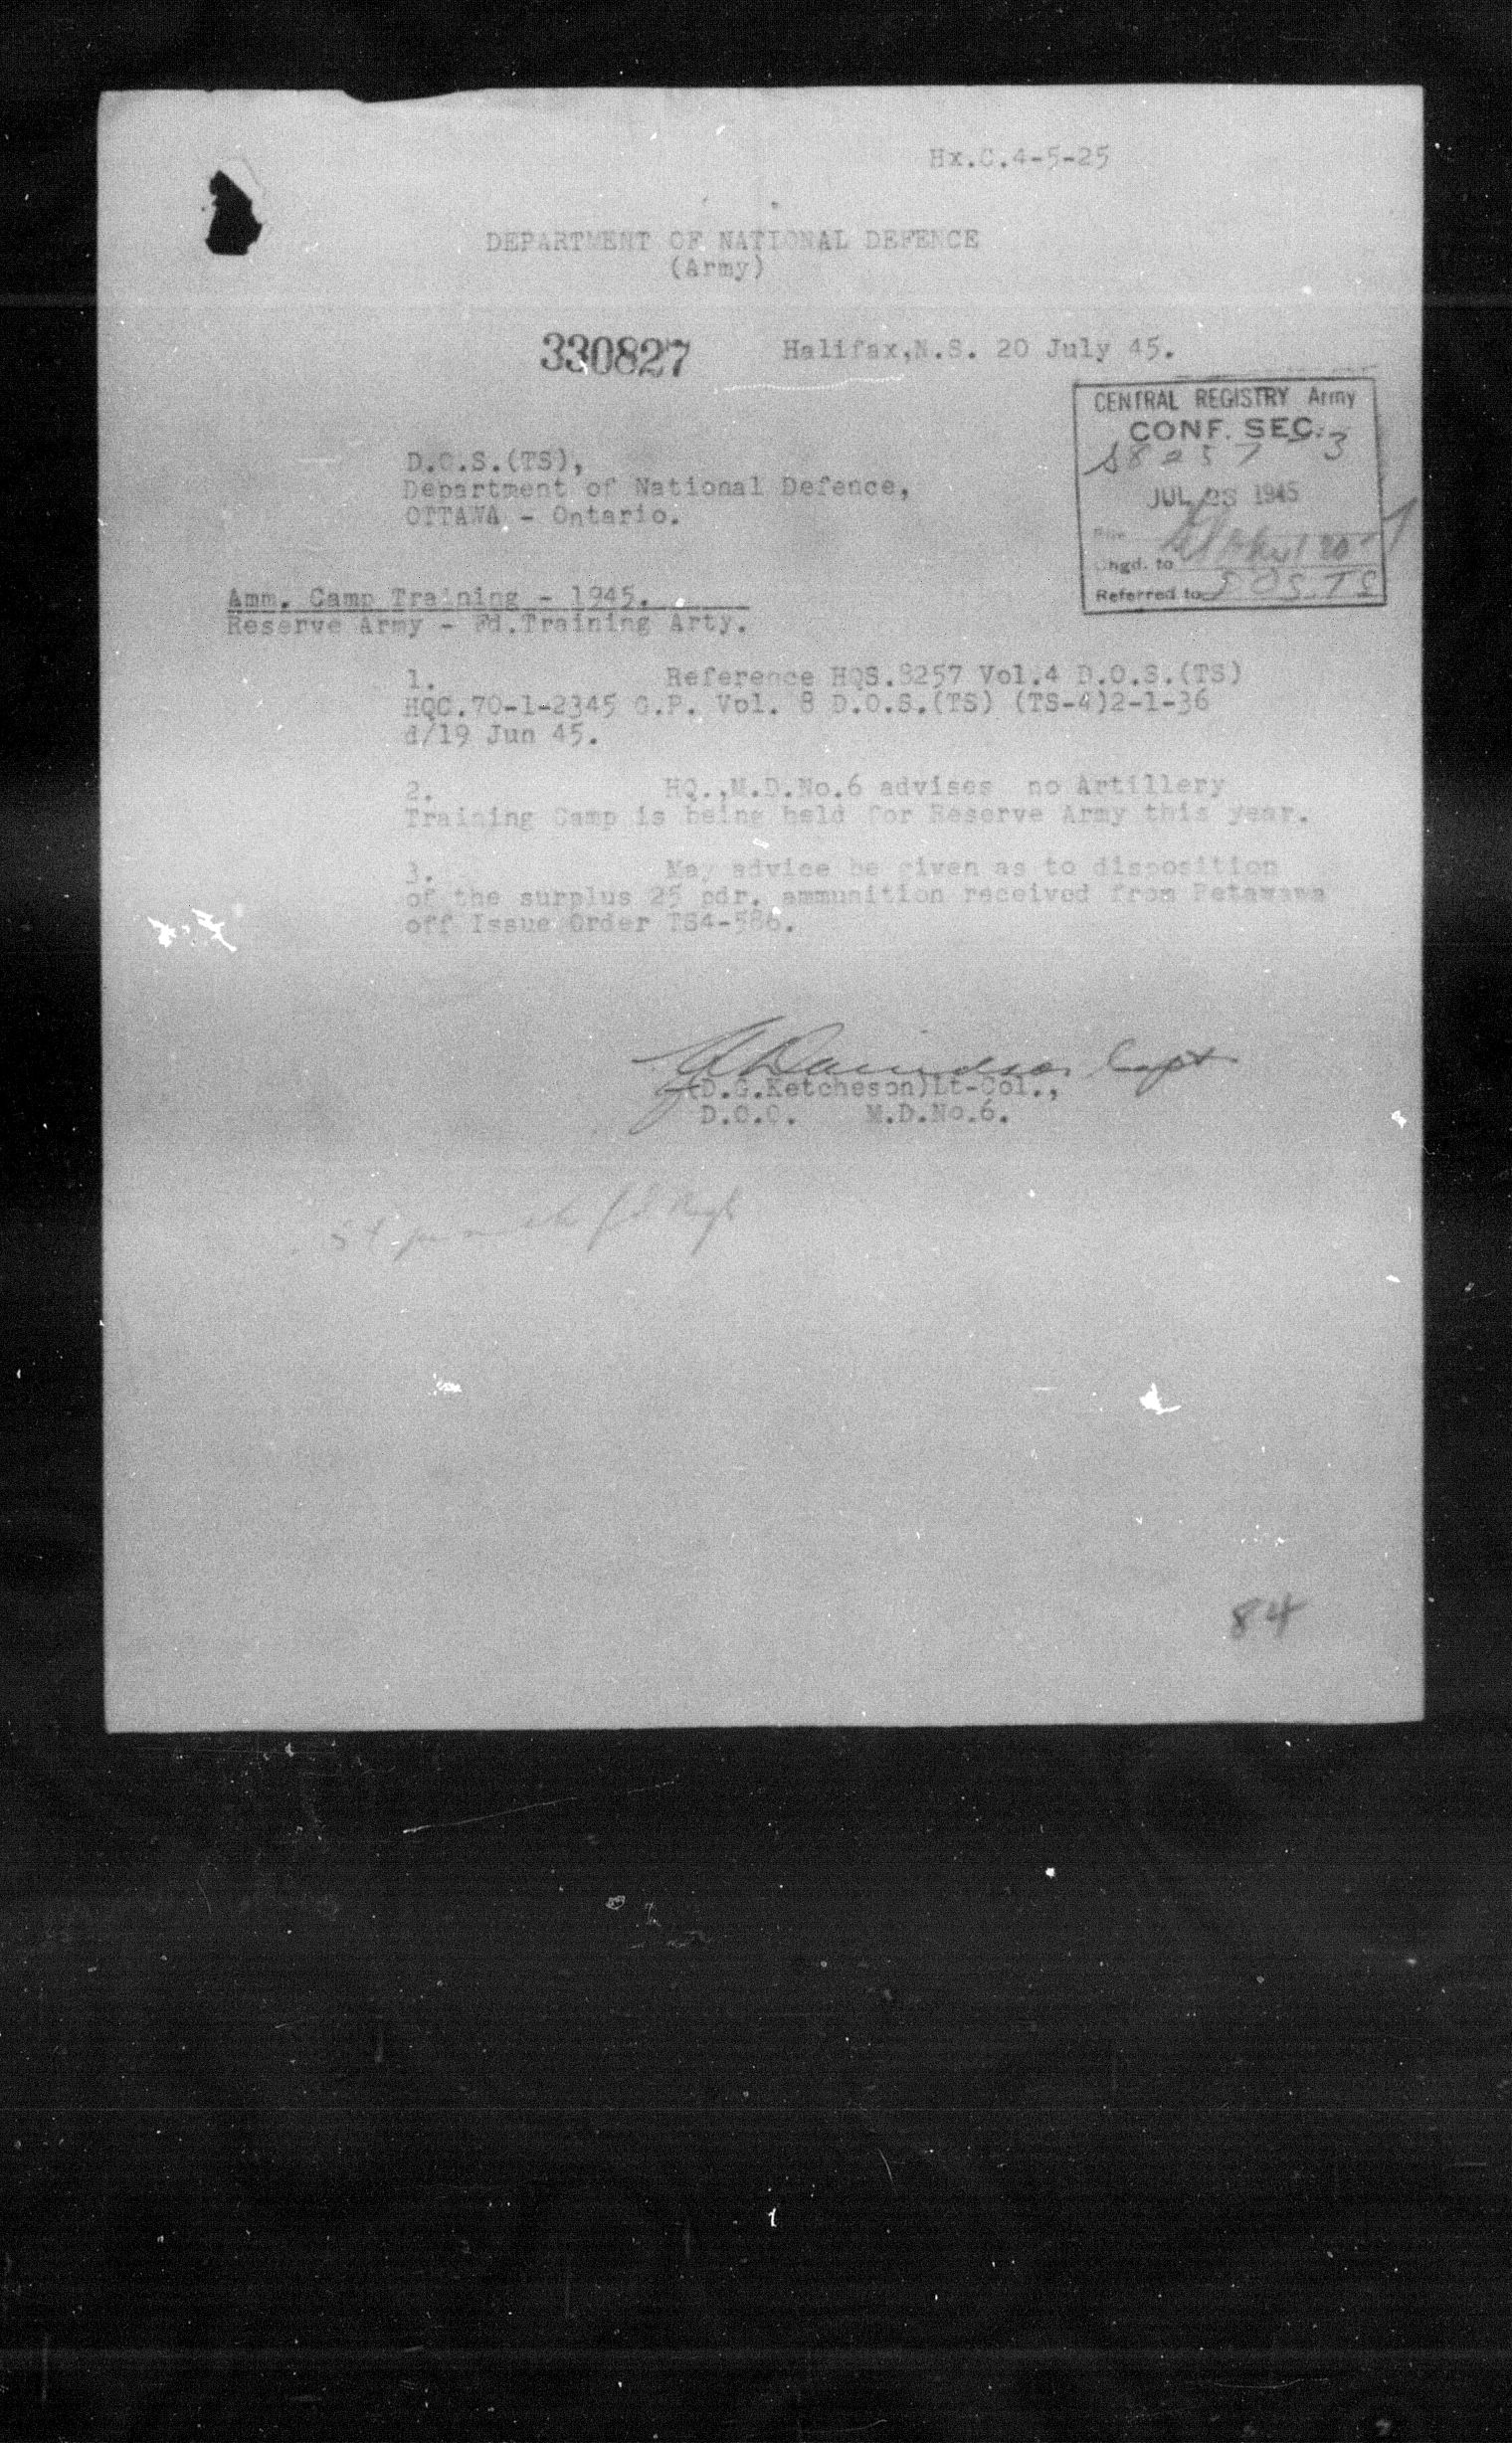 Hx.C.4-5-25
DEPARTMENT OF NATIONAL DEFENCE
(Army)
330827
Halifax,N.S. 20 July 45.
CENTRAL REGISTRY Army
CONF. SEC.
S8257 3
JUL 1945
File
Chgd. to
Referred to DOS.TS
D.O.S.(TS),
Department of National Defence,
OTTAWA - Ontario.
Amm. Camp Training - 1945.
Reserve Army - Fd.Training Arty.
1. Reference HQS.8257 Vol.4 D.O.S.(TS)
HQC.70-1-2345 G.P. Vol. 8 D.O.S.(TS) (TS-4)2-1-36
d/19 Jun 45.
2. HQ.,M.D.No.6 advises no Artillery
Training Camp is being held for Reserve Army this year.
3. May advice be given as to disposition
of the surplus 25 pdr. ammunition received from Petawawa
off Issue Order TS4-586.
Davidson Capt
(D.G.Ketcheson)Lt-Col.,
D.O.O. M.D.No.6.
84